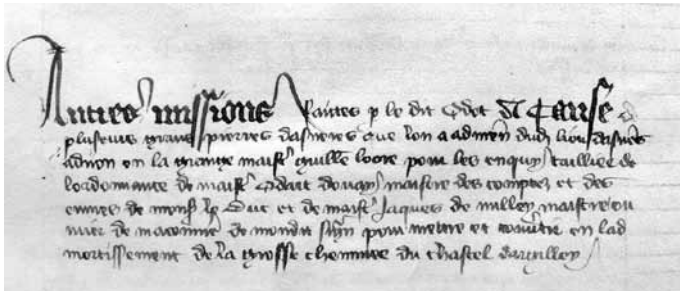 Autres missions faites p le dit Odet A Cause d
plusieurs grans pierres dasnieres que lon a admen dud lieu dasnieres
a dijon en la grange maist guille pour les enquy taillier de
lordonnance de maist Odart douay maistre des comptez et des
euvres de mons le Duc et de maist Jaques de nilley maistre ou
vrier de maconnie de mondit sgn pour mettre et convtir en lad
mortissement de la grosse cheminee du chastel dargilley